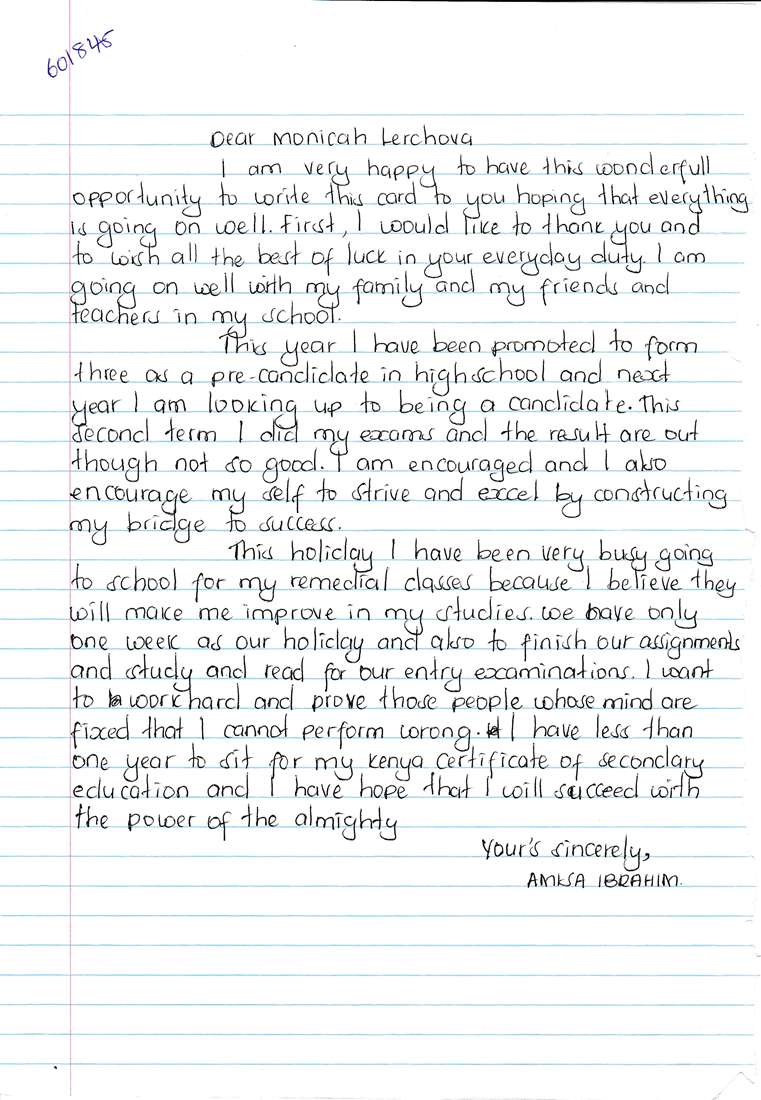 601845
Dear Monicah Lerchova
I am very happy to have this wonderfull
opportunity to write this card to you hoping that everything
is going on well. First, I would like to thank you and
to wish all the best of luck in your everyday duty. I am
going on well with my family and my friends and
teachers in my school.
This year I have been promoted to form
three as a pre-candidate in highschool and next
year I am looking up to being a candidate. This
second term I did my exams and the result are out
though not so good. I am encouraged and I also
encourage my self to strive and excel by constructing
my bridge to success.
This holiday I have been very busy going
to school for my remedial classes because I believe they
will make me improve in my studies. We have only
one week as our holiday and also to finish our assignments
and study and read for our entry examinations. I want
to work hard and prove those people whose mind are
fixed that I cannot perform wrong. I have less than
one year to sit for my Kenya Certificate of secondary
education and I have hope that I will succeed with
the power of the almighty
Your's sincerely,
IBRAHIM.